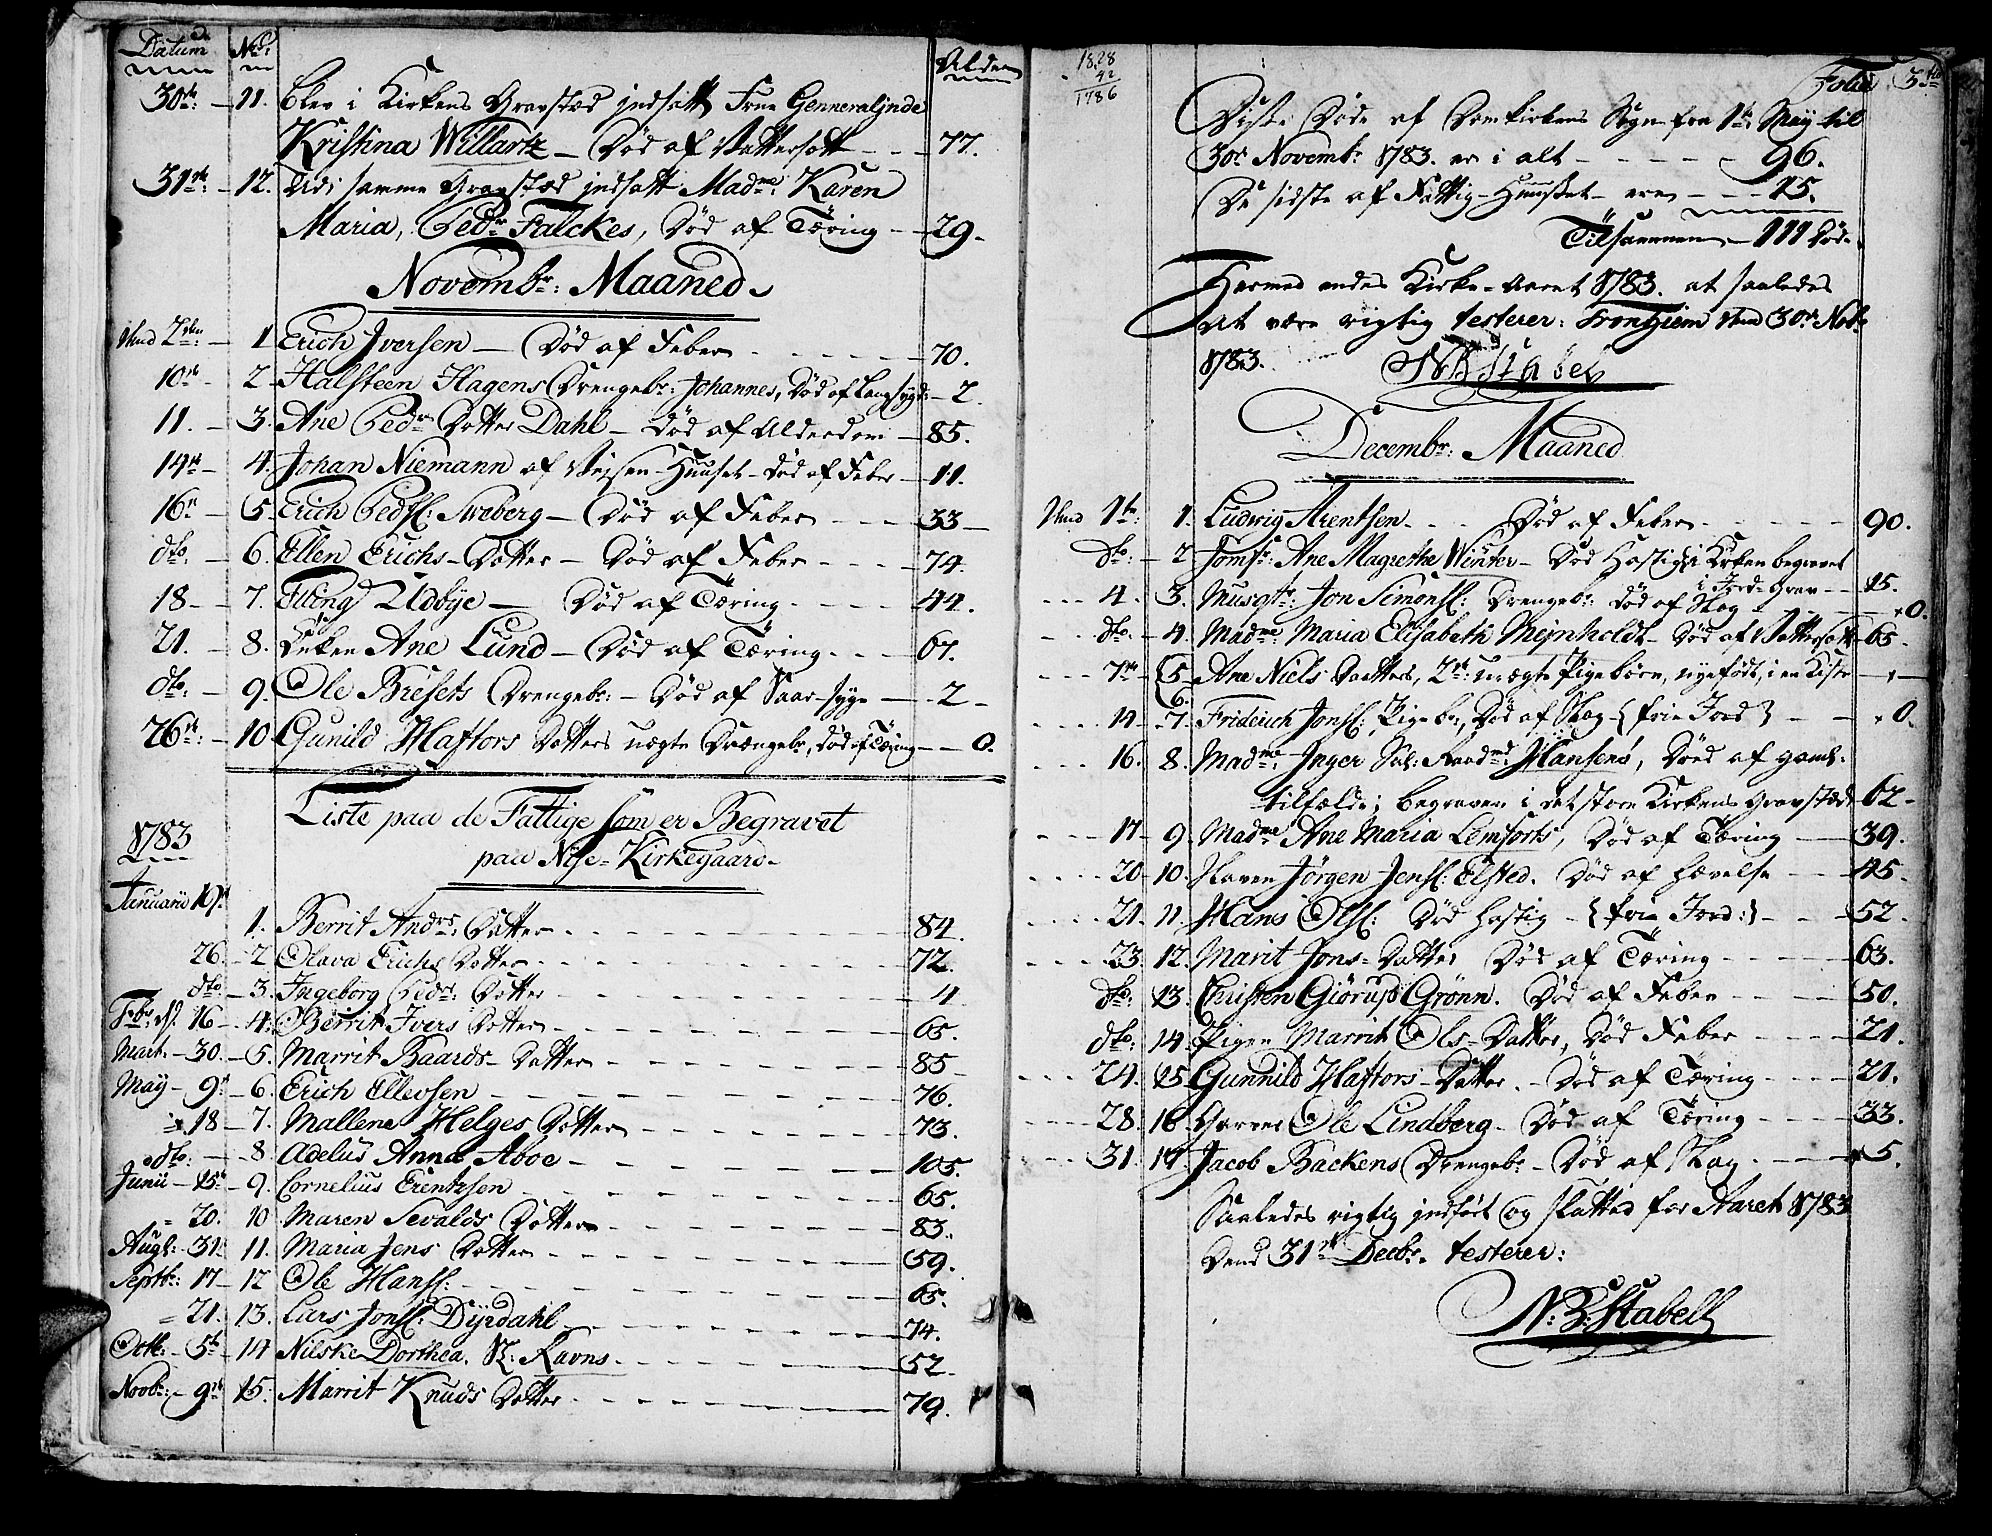 Datum No: Alder
30te: - 11. Blev i Kirkens Gravstæd indsatt Frue Genneralinde
Kristina Willartz - Død af Vattersott - - 77.
31te: - 12. Udi samme Gravstæd indsatt Madme: Karen
Maria, Pedr Falckes, Død af Tæring - - 29 -
Novembr: Maaned.
Dend 2den: - 1 Erich Iversen - Død af Feber - - - 70.
10de - 2 - Halsteen Hagens Drengebr: Johannes, Død af Langsygd: - 2.
11. - 3. Ane Pedrs Dotter Dahl - Død af Alderdom - 85.
14de - 4. Johan Niemann af Vejsen-Huuset - Død af Feber - 11.
16de - 5. Erich Pedsl: Sveberg - Død af Feber - - - 33 -
dto: - 6. Ellen Erichs - Dotter - Død af Feber - - - 74.
18 - - 7. Elling Udbÿe - Død af Tæring - - - - 44.
21. - 8. Enken Ane Lund - Død af Tæring - - - 67.
dto: - 9. Ole Bresets Drengebr: - Død af Saar-syge - - 2 -
26de: - 10 Gunild Haftors Dotters uægte Drængebr, Død af Tæring - - 0.
Liste paa de Fattige som er Begravet
paa Nye-Kirkegaard.
1783
Januarii 19de 1. Berrit Andrs: Dotter - - - 84.
26. - 2 Olava Erichs Dotter - - - 72.
dto. - 3. Ingeborg Pedrs: Dotter - - - 4
Febr: d. 16 - 4. Berrit Ivers Dotter - - - 65.
Mart: - 30. - 5. Marrit Baards - Dotter - - - 85 -
May - 9de - 6. Erich Ellevsen - - - 76.
18 - 7. Mallena Helges Dotter - - - 73.
dto: - 8. Adelus Anna Aboe - - - 105.
Junii - 15de - 9. Cornelius Erentzsen - - - 65.
- 20. 10 Maren Sevalds Dotter - - - 83.
Augt: - 31. 11. Maria Jens Dotter - - - 59.
Septbr: 17 - 12 Ole Hansl: - - - 65.
- 21. 13. Lars Jonsl: Dÿrdahl - - - 74.
Octbr: - 5te - 14 Nilske Dorthea, Sl: Ravns. - - - 52 -
Novbr: - 9de - 15. Marrit Knuds Dotter - - - 79.
1828
42
1786
Folio 3tie
Disse Døde af Domkirkens Sogn fra 1te Maÿ til
30te Novembr: 1783. er i alt - - - - - 96.
De sidste af Fattig-Huuset - ere - - - 15.
Tilsammen - 111 Død.
Hermed endes Kirke-Aaret 1783. at saaledes
At være rigtig testerer: Trontziem dend 30te Nobr
1783. NB Stabel
Decembr: Maaned
Dend 1te: 1. Ludwig Arentsen - - - Død af Feber - - - - 90.
dto: - 2 Jomfr: Ane Magrethe Winter - Død Hastig i Kirken begravet
i Jord-Grav - - 15.
- - - 4. - 3. Musqtr: Jon Simonsl: Drengebr: død af Slag - - - 0.
- dto. - 4. Madme Maria Elisabeth Meÿnholdt - Død af Vattersott - 65 -
- - - 7de 5 - Ane Niels Daatters, 2de: uægte Pigebørn, nyefødt, i en Kiste - , -
6.
- - - - 14 - 7. Friderich Jonsl: Pigebr:, Død af Slag - { frie Jord } - - 0.
- - - 16. 8. Madme Inger Sal: Raadmd: Hansens, Død af gaml:
tilfælde; begraven i det store Kirkens Gravstæd 62 -
- - - - 17 - 9. Madme Ane Maria Lemforts, Død af Tæring - - 39.
- - - - 20 - 10. Slaven Jörgen Jensl: Elsted. Død af Hævelse - - - 45 -
- - - - 21. 11. Hans Olsl: Død Hastig - { frie Jord: } - - - 52.
- - - 23. 12. Marit Jons - Datter Død af Tæring - - - - 63.
dto: 13. Christen Giörup Grönn. Død af Feber - - - 50.
dto: 14. Pigen Marrit Ols - Datter, Død Feber - - - - 21.
- - - 24. 15. Gunnild Haftors - Datter. - Død af Tæring - - - - 21.
- - - - 28. 16. Garver Ole Lindberg - Død af Tæring - - - 33.
- - - 31. 17. Jacob Backens Drengebr - Død af Slag - - - - 5.
Saaledes rigtig indført og sluttet for Aaret 1783
Dend 31te Decbr. testerer:
N: B: Stabell